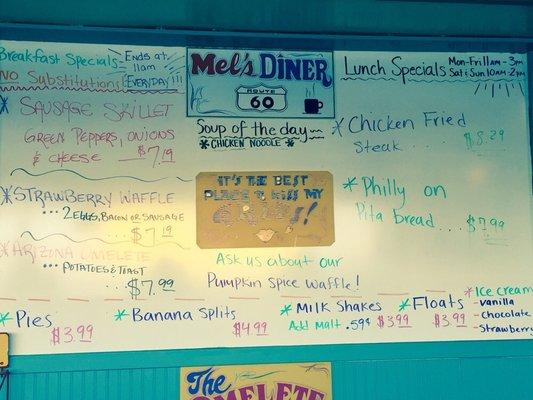 Breakfast Specials
Ends at
11am
EVERYDAY!!!
No Substitutions
* SAUSAGE SKILLET
GREEN PEPPERS, ONIONS
& CHEESE $7.19
* STRAWBERRY WAFFLE
... 2 EGGS, BACON OR SAUSAGE
... $7.19
* ARIZONA OMELETE
... POTATOES & TOAST
... $7.99
Mel's DINER
ROUTE
60
Soup of the day
* CHICKEN NOODLE *
IT'S THE BEST
PLACE TO KISS MY
Ask us about our
Pumpkin Spice Waffle!
Lunch Specials
Mon-Fri 11am - 3pm
Sat & Sun 10am - 2pm
* Chicken Fried
Steak ... $8.29
* Philly on
Pita bread .... $7.99
* Pies
$3.99
* Banana Splits
$4.99
* Milk Shakes
Add Malt .59¢ $3.99
* Floats
$3.99
* Ice cream
- Vanilla
- Chocolate
- Strawberry
The
OMELETE